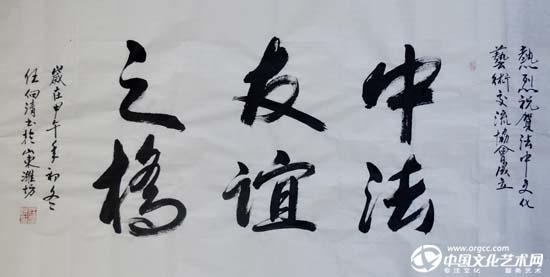 熱烈祝賀法中文化
藝術交流協會成立
中法
友誼
之橋
歲在甲午年初冬
任伯清书於山東濰坊
www.orgcc.com
中国文化艺术网
专注文化 服务艺术